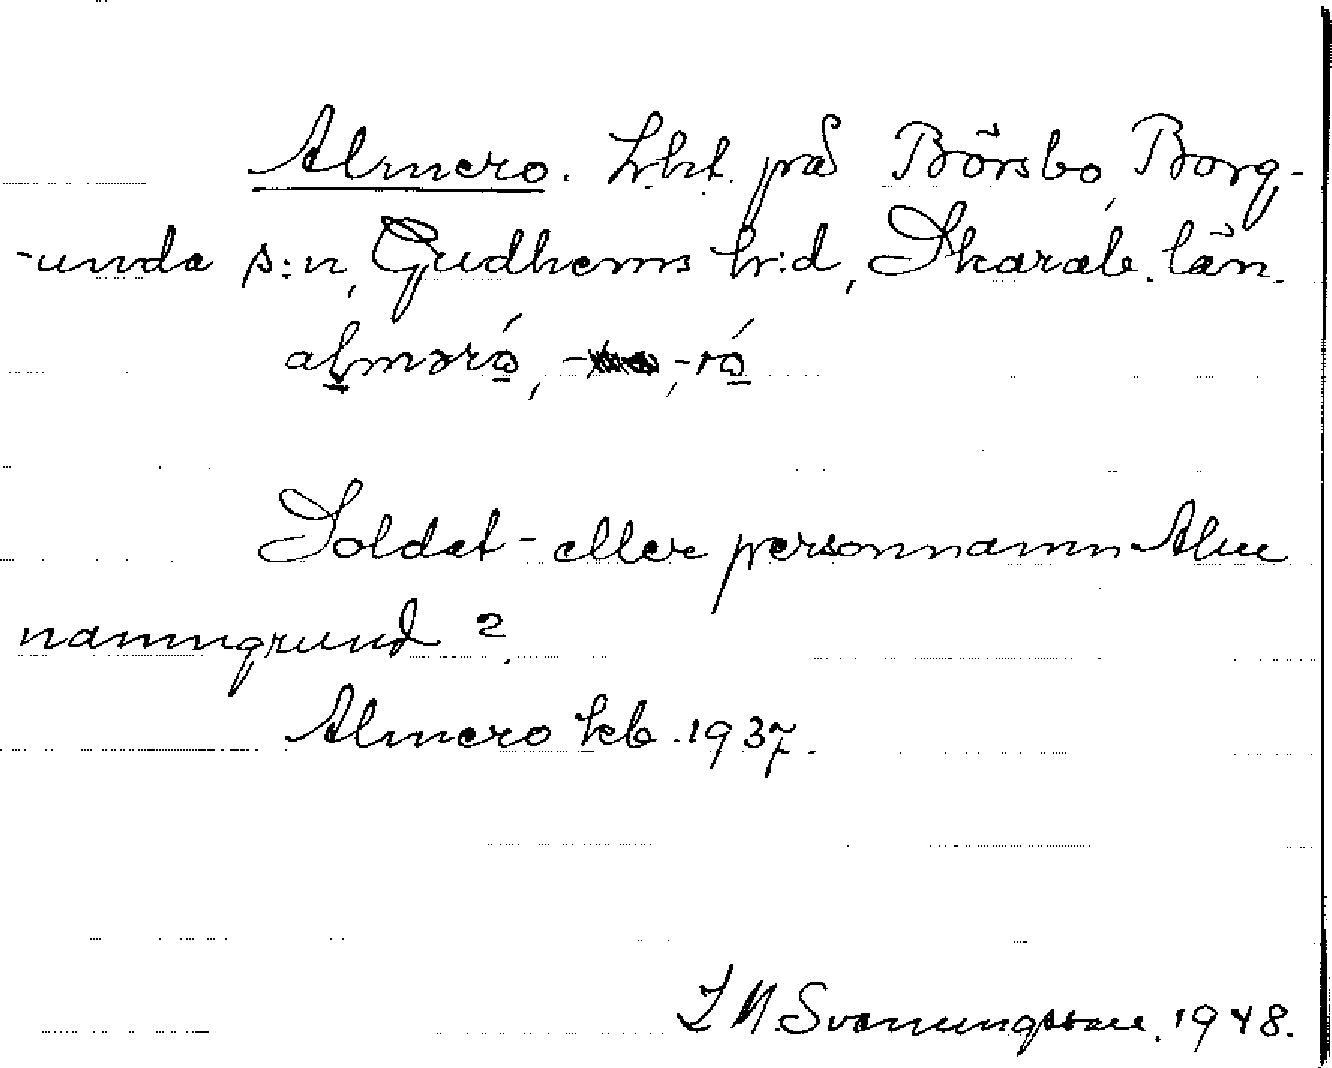 Almero. Lht. på Börsbo, Borg-
-unda s:n, Gudhems h:d, Skarab. län.
alməró, - -, -ró
Soldat- eller personnamn Alm
namngrund?
Almero kb. 1937.
Svenungsson. 1948.